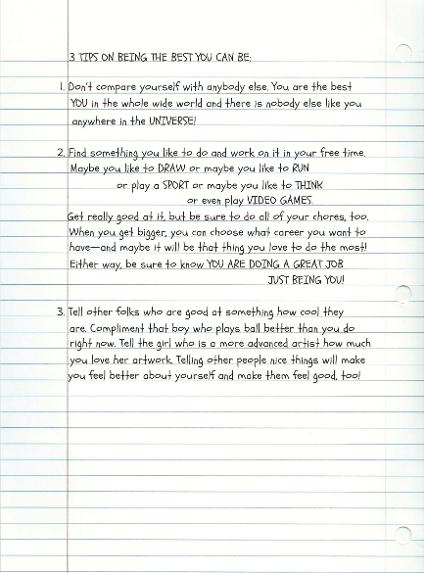 3 TIPS ON BEING THE BEST YOU CAN BE:
1. Don't compare yourself with anybody else. You are the best
YOU in the whole wide world and there is nobody else like you
anywhere in the UNIVERSE!
2. Find something you like to do and work on it in your free time.
Maybe you like to DRAW or maybe you like to RUN
or play a SPORT or maybe you like to THINK
or even play VIDEO GAMES.
Get really good at it, but be sure to do all of your chores, too.
When you get bigger, you can choose what career you want to
have—and maybe it will be that thing you love to do the most!
Either way, be sure to know YOU ARE DOING A GREAT JOB
JUST BEING YOU!
3. Tell other folks who are good at something how cool they
are. Compliment that boy who plays ball better than you do
right now. Tell the girl who is a more advanced artist how much
you love her artwork. Telling other people nice things will make
you feel better about yourself and make them feel good, too!